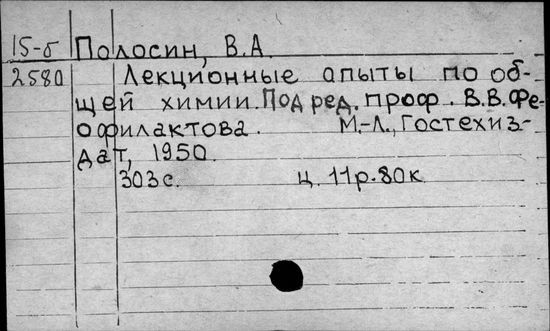 15-5 Полосин, В.А.
2580 Лекционные опыты по об-
щей химии. Под ред. проф. В.В.Фе-
офилактова. М.-Л., Гостехиз-
дат, 1950.
303с. ц. 11р.80к.